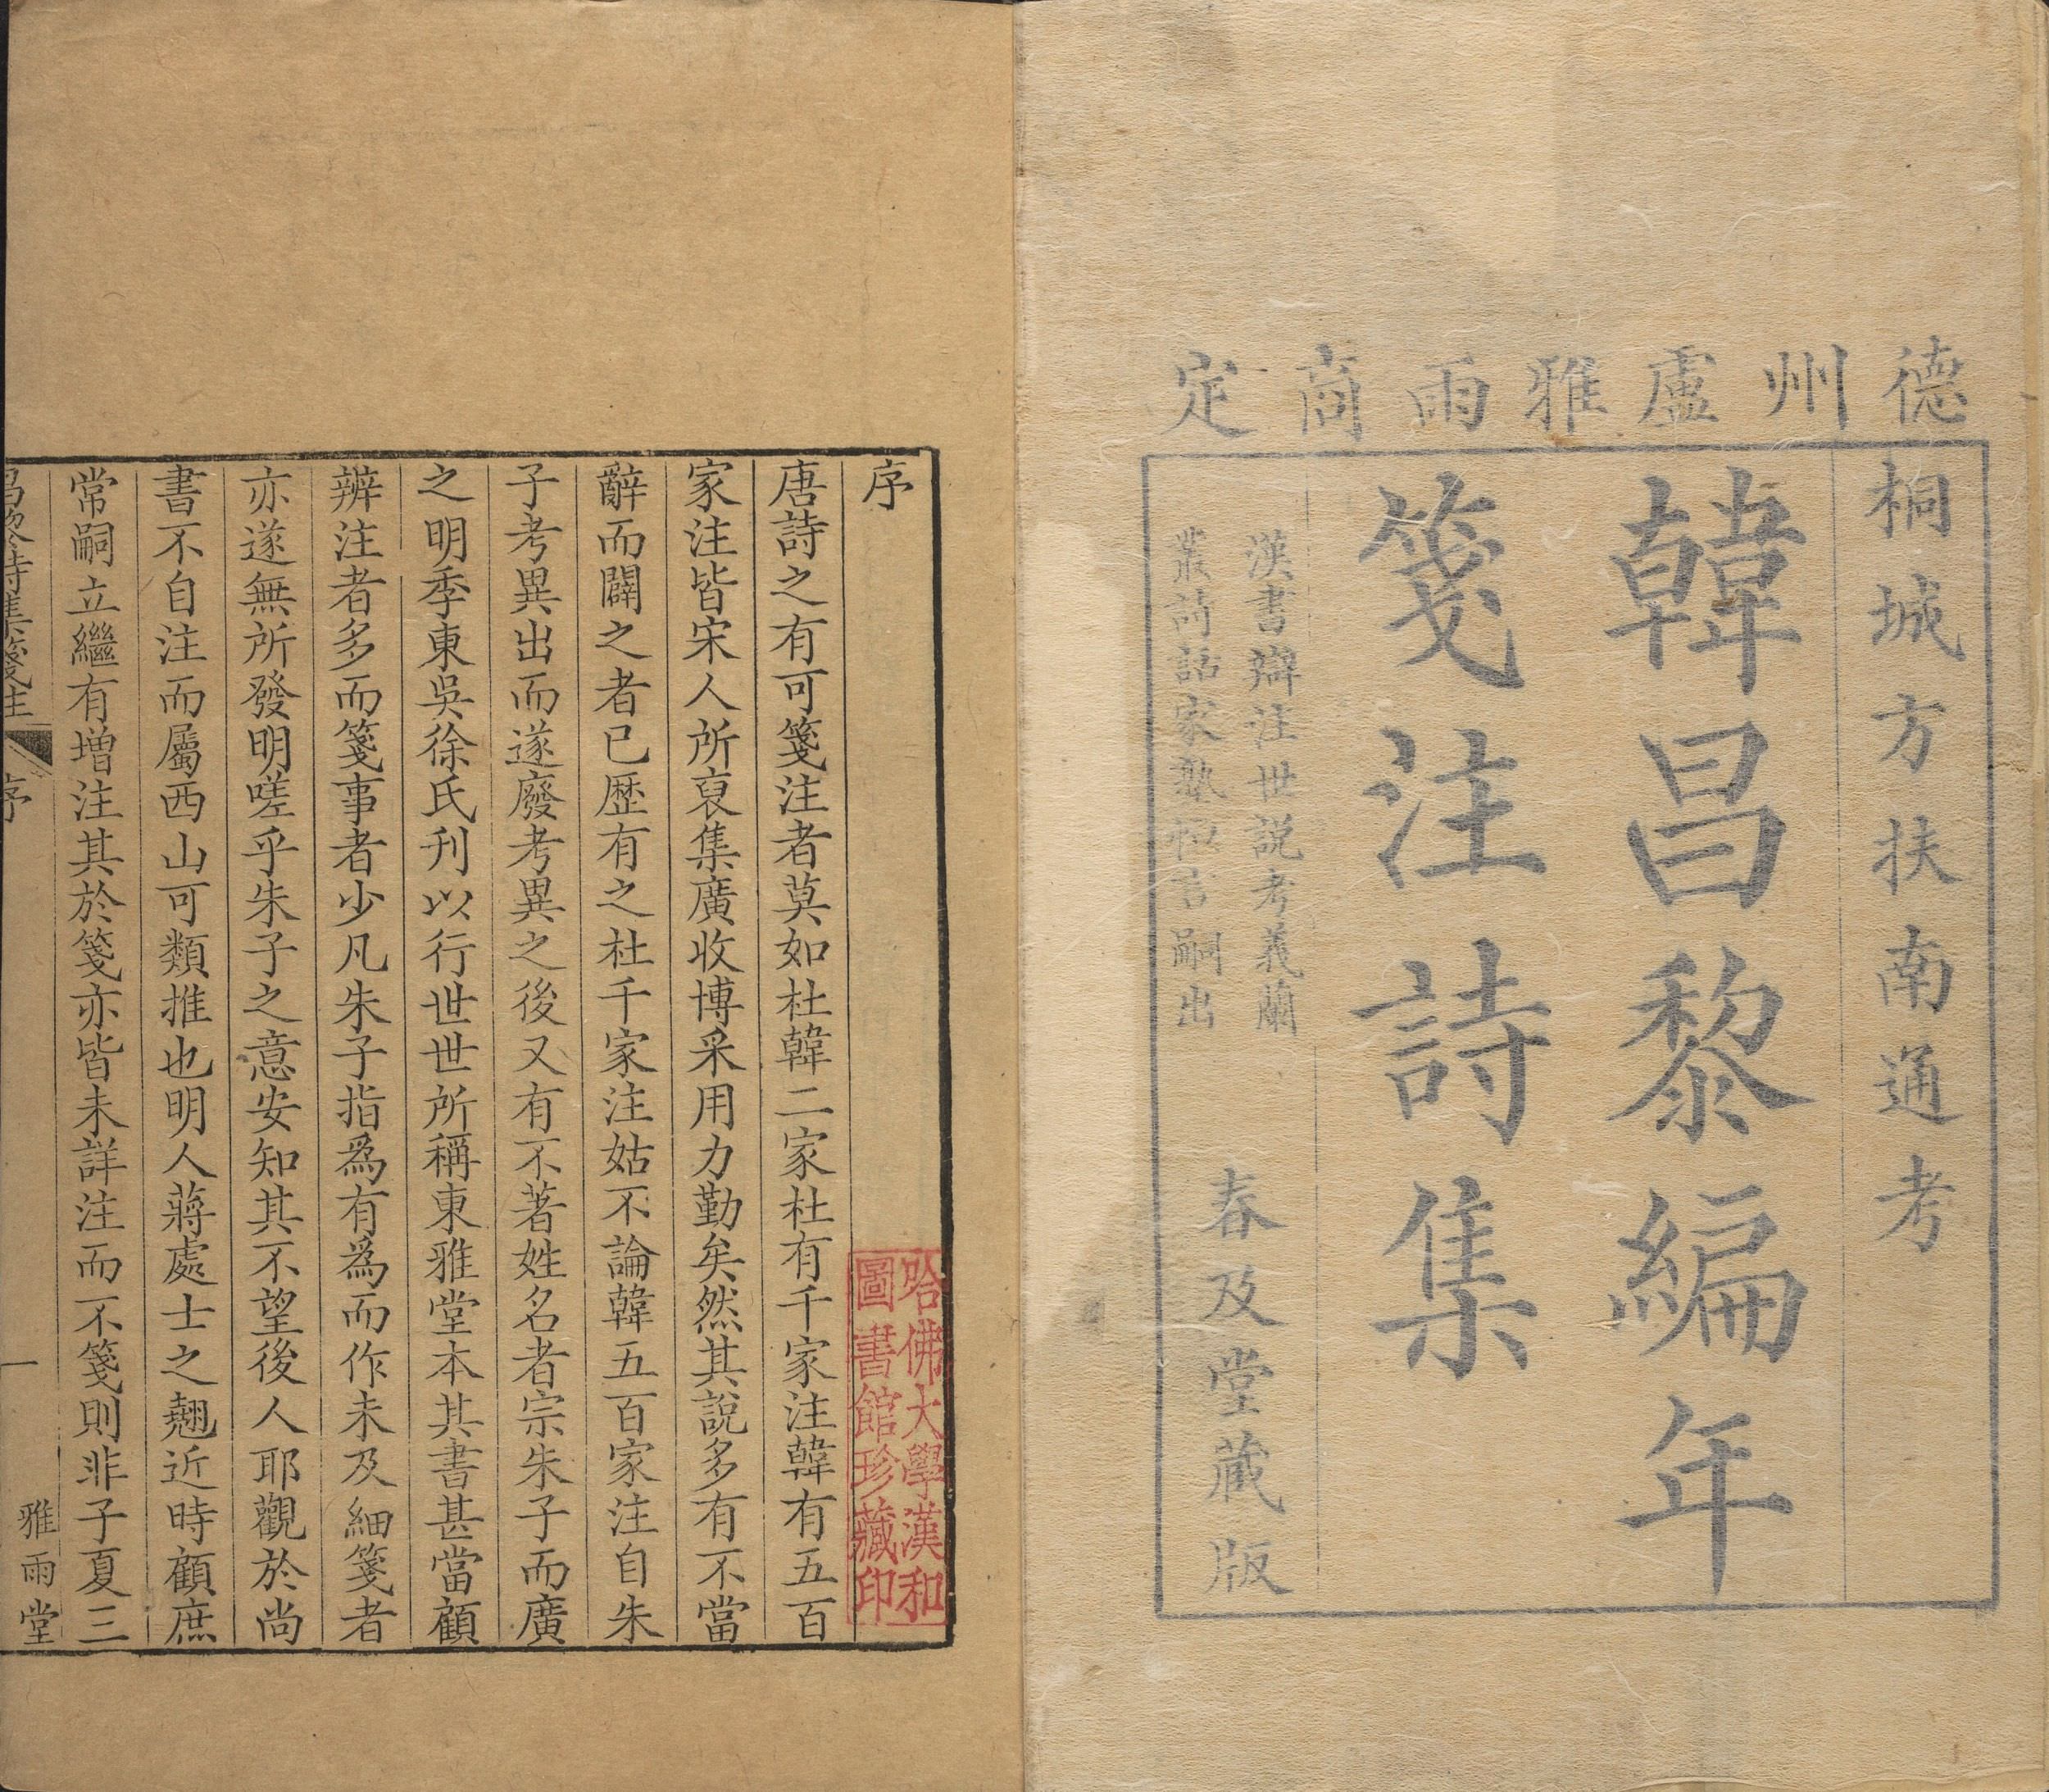 德州盧雅雨商定
桐城方扶南通考
韓昌黎編年
箋注詩集
漢書辯注世說考義蘭
叢詩話家塾恒言嗣出
春及堂藏版
序
唐詩之有可箋注者莫如杜韓二家杜有千家注韓有五百
家注皆宋人所裒集廣收博采用力勤矣然其說多有不當
辭而闢之者已歷有之杜千家注姑不論韓五百家注自朱
子考異出而遂廢考異之後又有不著姓名者宗朱子而廣
之明季東吳徐氏刊以行世世所稱東雅堂本其書甚當顧
辨注者多而箋事者少凡朱子指爲有爲而作未及細箋者
亦遂無所發明嗟乎朱子之意安知其不望後人耶觀於尚
書不自注而屬西山可類推也明人蔣處士之翹近時顧庶
常嗣立繼有增注其於箋亦皆未詳注而不箋則非子夏三
昌黎詩集箋注
序
一
雅雨堂
哈佛大學漢和
圖書館珍藏印